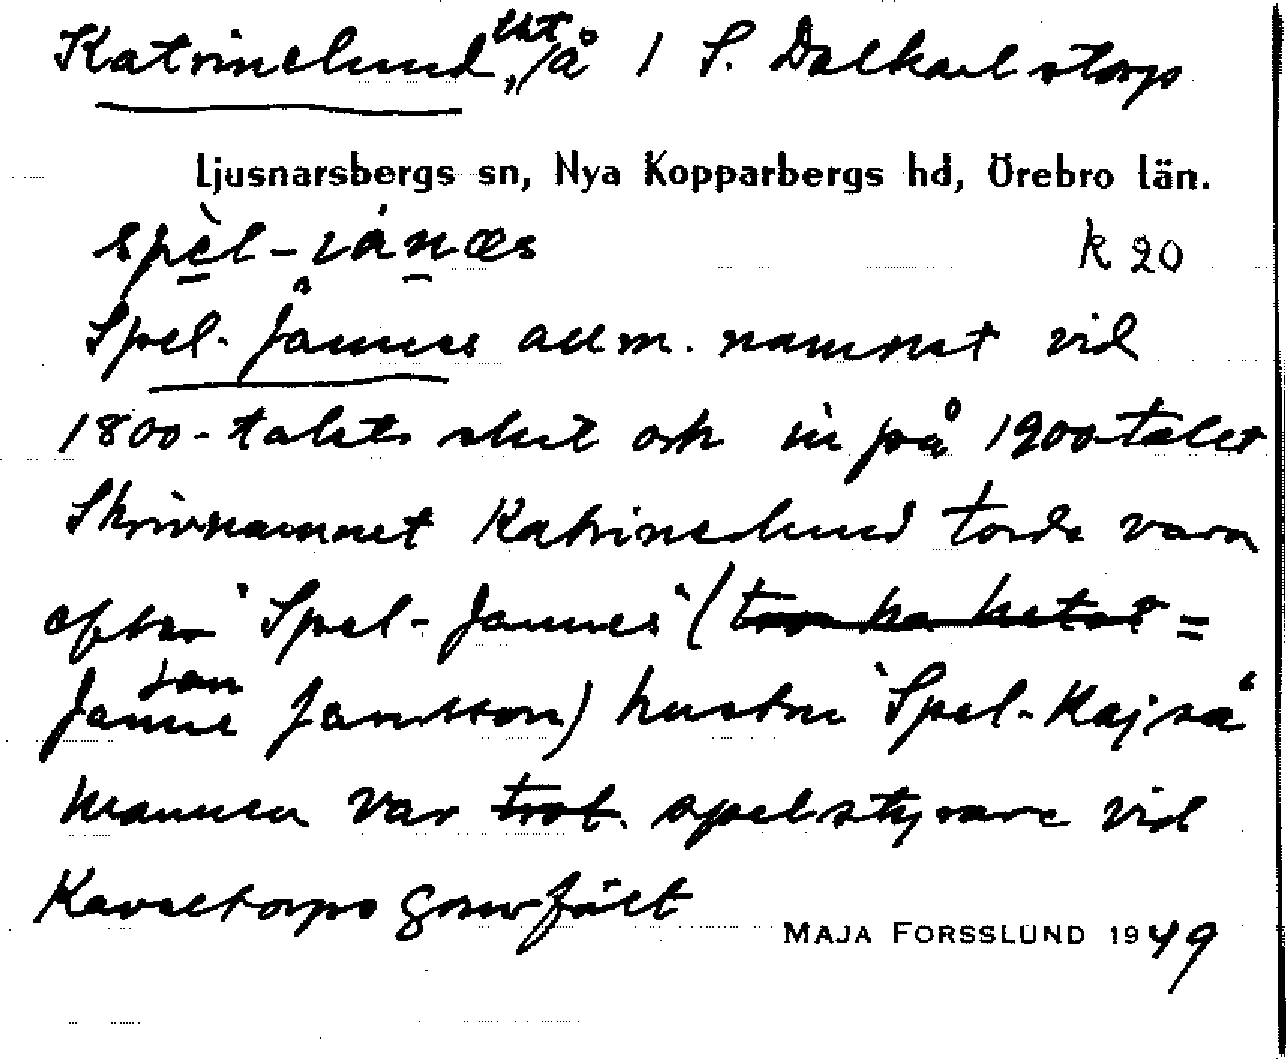 Katrinelund, lht på 1 S. Dalkarlstorp
Ljusnarsbergs sn, Nya Kopparbergs hd, Örebro län.
k 20
Spel-Jannes allm. namnet vid
1800-talets slut och in på 1900talet
Skrivnamnet Katrinelund torde vara
efter "Spel-Jannes" (tros ha hetat =
Jan
Janne Jansson) hustru "Spel-Kajsa"
mannen var trol. spelstyrare vid
Kaveltorps gruvfält
MAJA FORSSLUND 1949